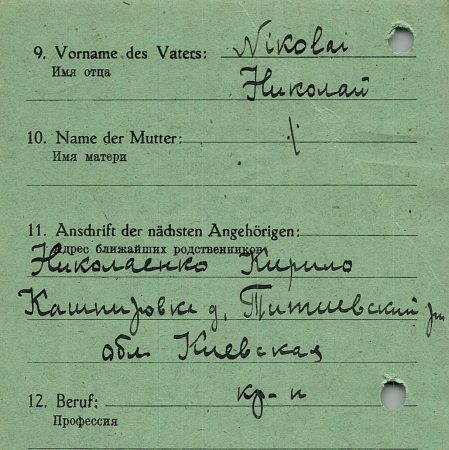 9. Vorname des Vaters: Nikolai
Имя отца
Николай
10. Name der Mutter: /
Имя матери
11. Anschrift der nächsten Angehörigen:
Адрес ближайших родственников
Николаенко Кирило
Кашпировке д,
обл. Киевская
12. Beruf: кр-н
Профессия